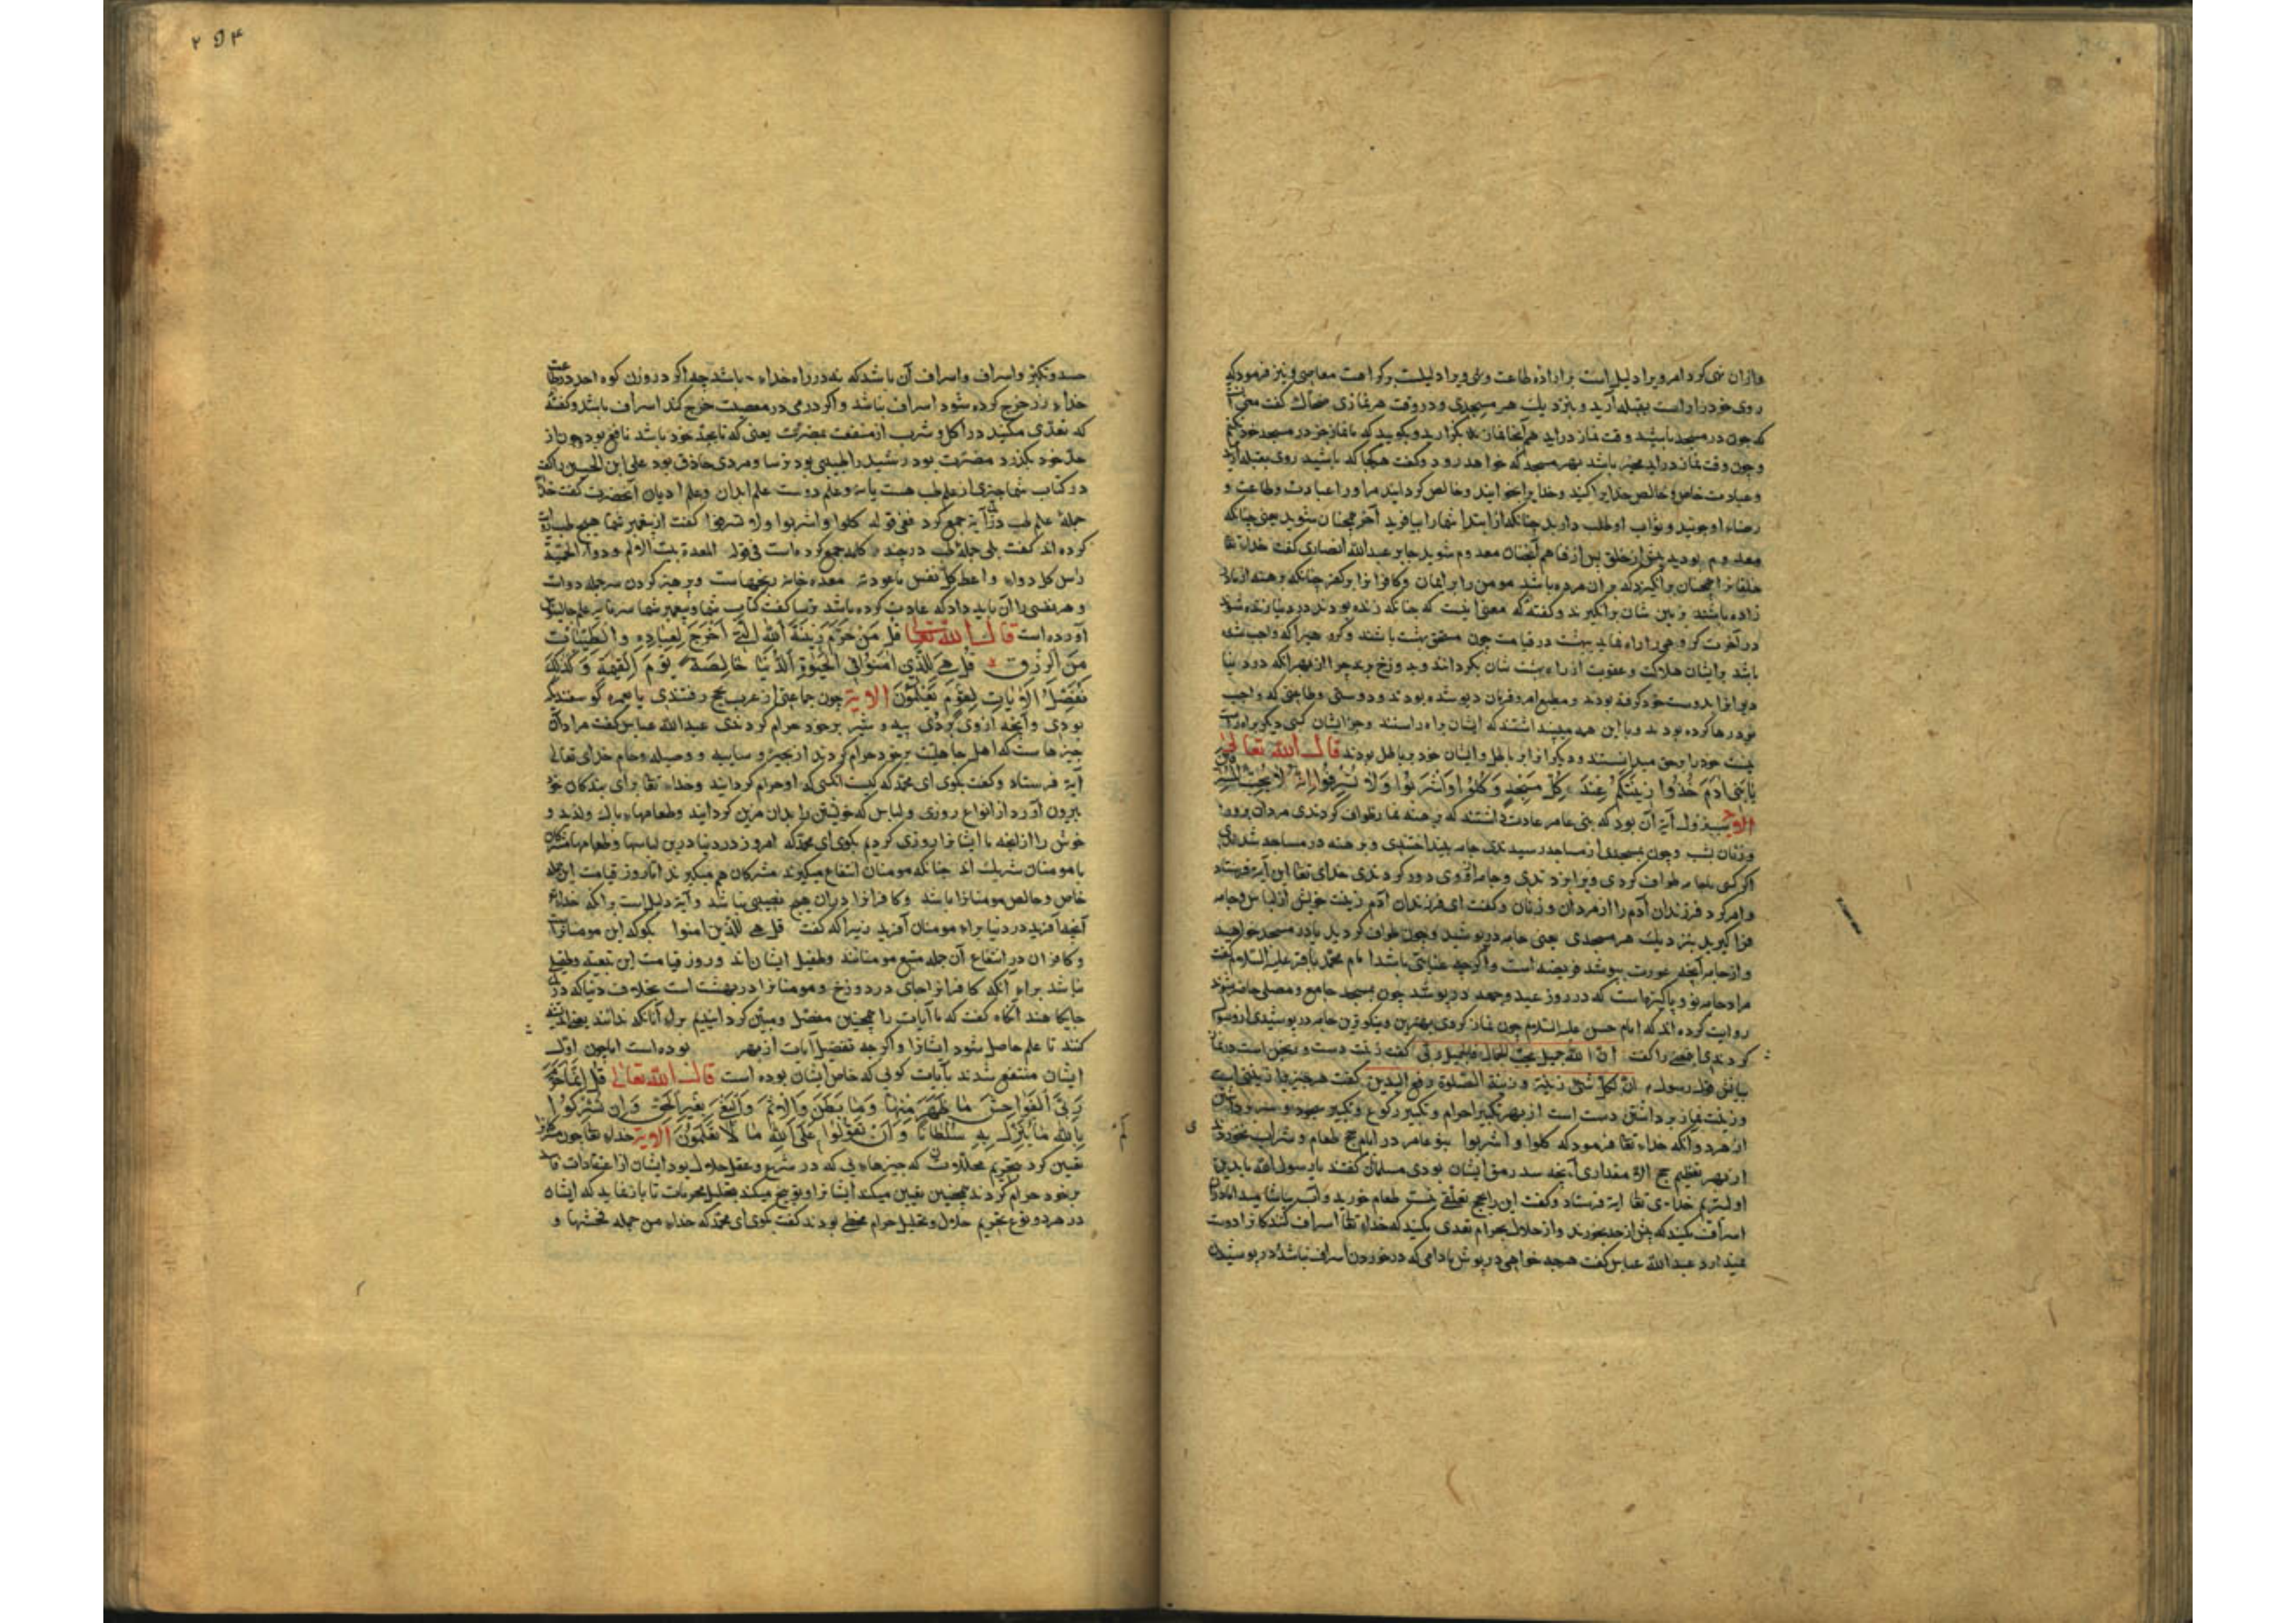 وازان نهی کرد امر ویرا دلیل است بر اراده طاعت و نهی ویرا دلیلست بر کراهت معاصی و نیز فرمود که
روی خود را راست بقبله آرید و بنزدیك هر مسجدی و در وقت هر نمازی ضحاك گفت معنی آنست
که چون در مسجد باشید و وقت نماز دراید هم آنجا نماز بگزارید و مگویید که تا نماز خود در مسجد خود کنیم
و عبادت خاص و خالص خدایرا کنید و خدا یرا بخوانید و خالص کردانید مراورا عبادت و طاعت و
رضاء او جوئید و ثواب او طلب دارید چنانکه از ابتدا شما را بیافرید آخر همچنان شوید یعنی چنانکه
معدوم بودید پیش از خلق پس از فنا هم آنچنان معدوم شوید جابر عبدالله انصاری گفت خداء تعا
خلقانرا همچنان برانگیزد که بران مرده باشد مومن را بر ایمان و کافرانرا بر کفر چنانکه
زاده باشند و گفته که معنی اینست که چنانکه زنده بودند در دنیا زنده شوند
باشد و ایشان هلاکت و عقوبت از راه بهشت شان بکرداند و بدوزخ برد جرا از بهر انکه در دنیا
دیوانرا بدوست خود کرفته بودند و مطیع امر و فرمان دیو شده بودند و دوستی و طاعتی که واجب
بود رها کرده بودند و با این همه میپنداشتند که ایشان براه راستند وجز ایشان کسی دیگر براه راست
نیست خود را بر حق میدانستند و دیگرانرا بر باطل و ایشان خود بر باطل بودند قال الله تعالی
یَا بَنِی آدَمَ خُذُوا زِینَتَکُمْ عِنْدَ کُلِّ مَسْجِدٍ وَکُلُوا وَاشْرَبُوا وَلَا تُسْرِفُوا اِنَّهُ لَا یُحِبُّ الْمُسْرِفِینَ
الآیة سبب نزول آیه آن بود که بنی عامر عادت داشتند که برهنه طواف کردندی مردان بروز
و زنان بشب و چون بمسجدی از مساجد رسیدندی جامه بینداختندی و برهنه در مساجد شدندی
اگر کسی با جامه طواف کردی ویرا بزدندی و جامه از وی دور کردندی خدای تعا این آیه فرستاد
و امر کرد فرزندان آدم را از مردان و زنان و گفت ای فرزندان آدم زینت خویش از لباس و جامه
فرا گیرید بنزدیك هر مسجدی یعنی جامه در پوشید و چون طواف کردید یا در مسجد خواهید
و از جامه آنچه عورت بپوشد فریضه است و اگر چه عبائی باشد امام محمد باقر علیه السلام گفت
مراد جامه نو و پاکیزهاست که در روز عید و جمعه درپوشند چون بمسجد جامع و مصلی حاضر شوند
روایت کرده اند که امام حسن علیه السلام چون نماز کردی بهترین و نیکوترین جامه در پوشیدی
کردندی گفت ان الله جمیل یحب الجمال فاتجمل لربی گفت زینت دست و نیکن است در نماز
ان لکل شئ زینة و زینة الصلوة رفع الیدین گفت هر چیز را زینتی است
و زینت نماز برداشتن دست است از بهر تکبیر احرام و تکبیر رکوع و تکبیر سجود
از هر دو آنکه خداء تعا فرمود که کلوا و اشربوا بنو عامر در ایام حج طعام و شراب نخوردندی
از بهر تعظیم حج الا مقداری آنچه سد رمق ایشان بودی مسلمانان گفتند یا رسول الله ما بدین
اولیتریم خدای تعا آیه فرستاد و گفت این را بحج تعلقی نیست طعام خورید و آب بیاشامید
اسراف مکنید که بیش از حد بخورید و از حلال بحرام تعدی مکنید که خداء تعا اسراف کنندکانرا دوست
نمیدارد عبدالله عباس گفت هر چه خواهی درپوش مادامی که در خوردن اسراف نباشد و در پوشیدن
حسد و تکبر و اسراف و اسراف آن باشد که نه در راه خداء باشد چه اگر در وزن کوه احد در طاعت
خداء زر خرج کرده شود اسراف نباشد و اگر درمی در معصیت خرج کند اسراف باشد و گفته
که تعدی مکنید در اکل و شرب از منفعت بمضرت یعنی که تا بحد خود باشد نافع بود چون از
حد خود بگذرد مضرت بود رشید را طبیبی بود ترسا و مردی حاذق بود علی ابن الحسین را گفت
در کتاب شما چیزی از علم طب هست یا نه و علم دوست علم ابدان و علم ادیان آنحضرت گفت خدا
جمله علم طب در آیة جمع کرد فی قوله کلوا و اشربوا ولا تسرفوا گفت از پیغمبر شما هیچ طب
کرده اند گفت بلی جمله طب در چند کلمه جمع کرده است فی قوله المعدة بیت الالم و دواء الحمیة
راس کل دواء و اعط کل نفس ما عودته معده خانه رنجهاست و پرهیز کردن سر جمله دوات
و هر نفسی را آن باید داد که عادت کرده باشد ترسا گفت کتاب شما و پیغمبر شما
آورده است قال الله تعالی قُلْ مَنْ حَرَّمَ زِینَةَ اللهِ الَّتِی اَخْرَجَ لِعِبَادِهِ وَالطَّیِّبَاتِ
مِنَ الرِّزْقِ قُلْ هِیَ لِلَّذِینَ امَنُوا فِی الْحَیٰوةِ الدُّنْیَا خَالِصَةً یَوْمَ الْقِیٰمَةِ وَکَذٰلِكَ
نُفَصِّلُ الْآیَاتِ لِقَوْمٍ یَعْلَمُونَ الآیة چون جماعتی از عرب بحج رفتندی یا عمره گوسفند
بودی و آنچه از وی بودی پیه و شیر بر خود حرام کردندی عبدالله عباس گفت مراد آن
چیزهاست که اهل جاهلیت بر خود حرام کردند از بحیره و سایبه و وصیله و حام خدای تعالی
آیه فرستاد و گفت بگوی ای محمد که کیست انکسی که او حرام کردانید و خداء تعا برای بندگان خود
بیرون آورد از انواع روزی و لباس که خویشتن را بدان مزین کردانید و طعامهاء پاك و لذیذ و
خوش را از انچه ما ایشانرا روزی کردیم بگوی ای محمد که امروز در دنیا درین لباسها و طعامها مشرکان
با مومنان شریك اند چنانکه مومنان انتفاع میگیرند مشرکان هم میگیرند اما روز قیامت
خاص و خالص مومنانرا باشد و کافرانرا دران هیچ نصیبی نباشد و آیة دلیل است برانکه خداء
آنچه آفرید در دنیا براء مومنان آفرید زیرا که گفت قل هی للذین امنوا بگو که این مومنانرا
و کافران در انتفاع آن جمله متبع مومنانند و طفیل ایشان اند و روز قیامت این تبعیت و طفیل
نباشد براء آنکه کافرانرا جای در دوزخ و مومنانرا در بهشت است بخلاف دنیا که در
جایگاهند آنگاه گفت که ما آیات را همچنین مفصل و مبین کردانیدیم برای آنانکه دانند
کنند تا علم حاصل شود ایشانرا و اگر چه تفصیل آیات از بهر بوده است اما چون
ایشان منتفع شدند بآیات گوئی که خاص ایشان بوده است قال الله تعالی قُلْ اِنَّمَا حَرَّمَ
رَبِّیَ الْفَوَاحِشَ مَا ظَهَرَ مِنْهَا وَمَا بَطَنَ وَالْاِثْمَ وَالْبَغْیَ بِغَیْرِ الْحَقِّ وَاَنْ تُشْرِکُوا
بِاللهِ مَا لَمْ یُنَزِّلْ بِهِ سُلْطَانًا وَاَنْ تَقُولُوا عَلَی اللهِ مَا لَا تَعْلَمُونَ الآیة خداء تعا چون
تعیین کرد بتحریم محللات که چیزهایی که در شرع و عقل حلال بود ایشان از اعتقادات
بر خود حرام کردند همچنین تعیین میکند ایشانرا و توبیخ میکند بتحلیل محرمات تا باز نماید که ایشان
در هر دو نوع تحریم حلال و تحلیل حرام مخطی بودند گفت بگوی ای محمد که خداء من جمله فحشها و